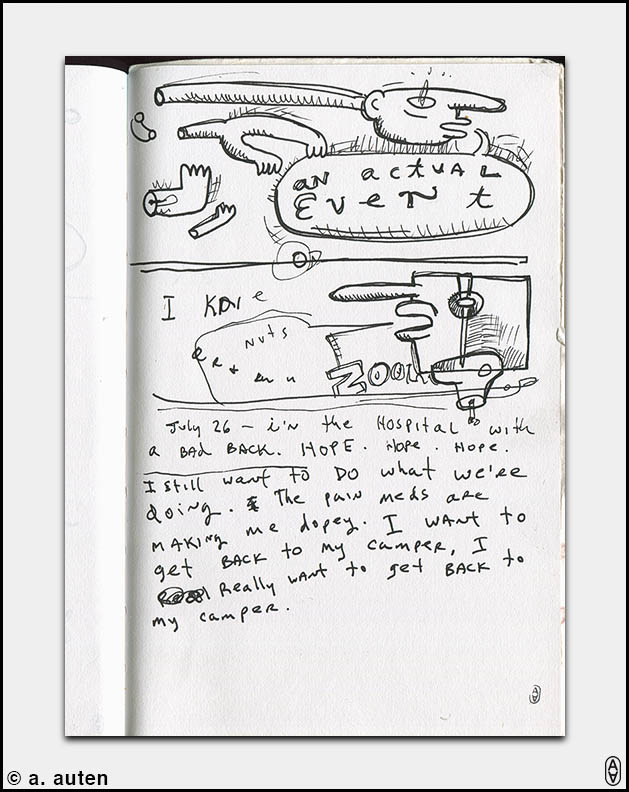 AN ACTUAL
EVENT
I
NUTS
ZOOM
July 26 - i'm the Hospital with
a BAD BACK. HOPE. HOPE. HOPE.
I still want to DO what we're
doing. The pain meds are
MAKING me dopey. I WANT to
get BACK to my camper, I
Really WANT to get BACK to
my camper.
© a. auten